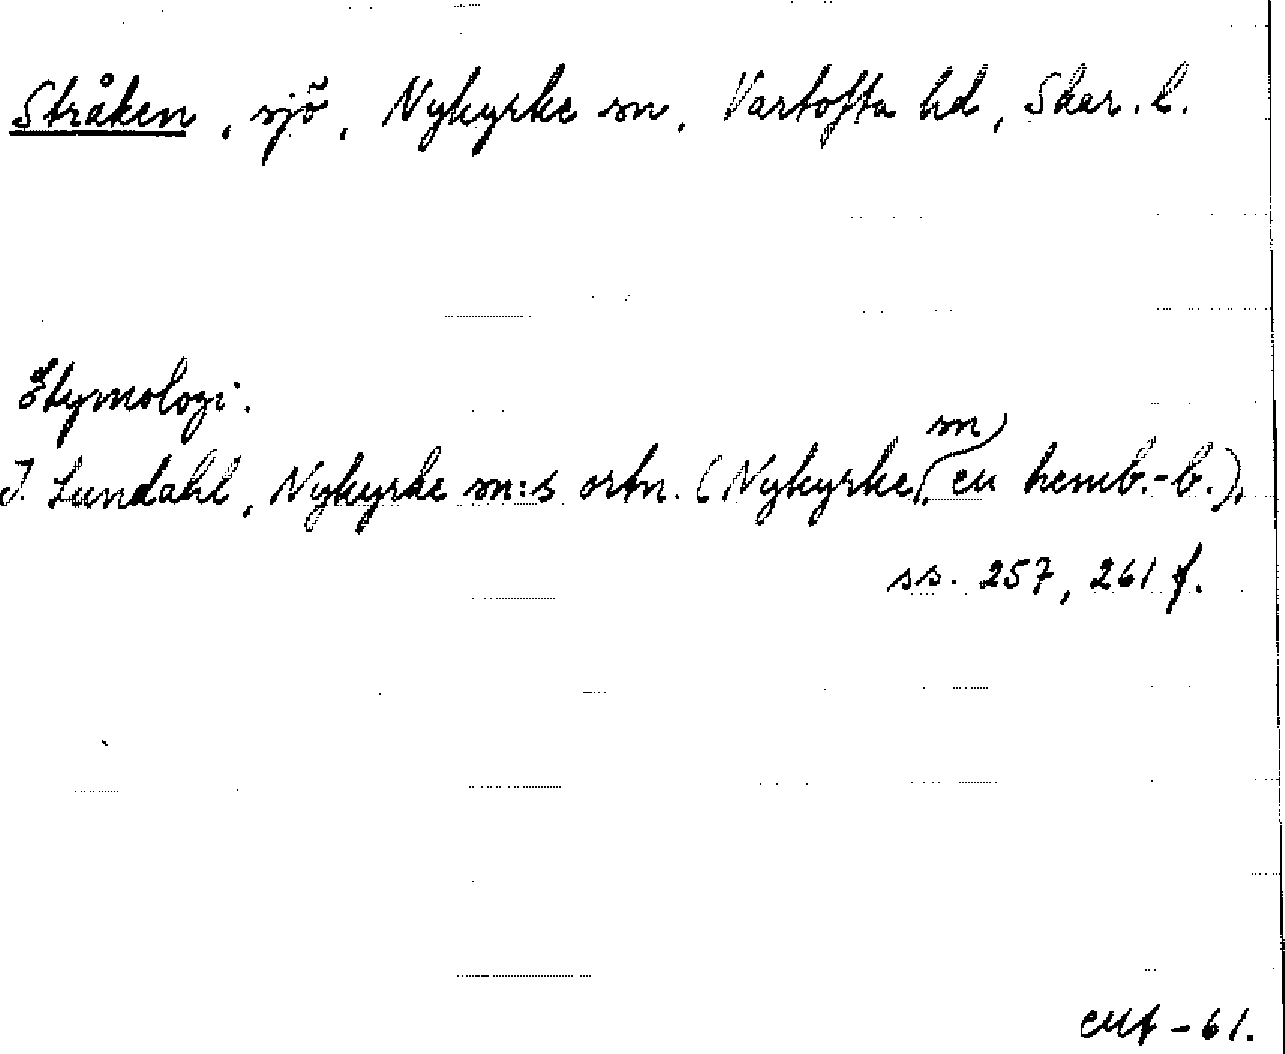 Stråken, sjö, Nykyrke sn, Vartofta hd, Skar. l.
Etymologi.
J. Lundahl, Nykyrke sn:s ortn. (Nykyrke sn, en hemb.-b.),
ss. 257, 261 f.
-61.